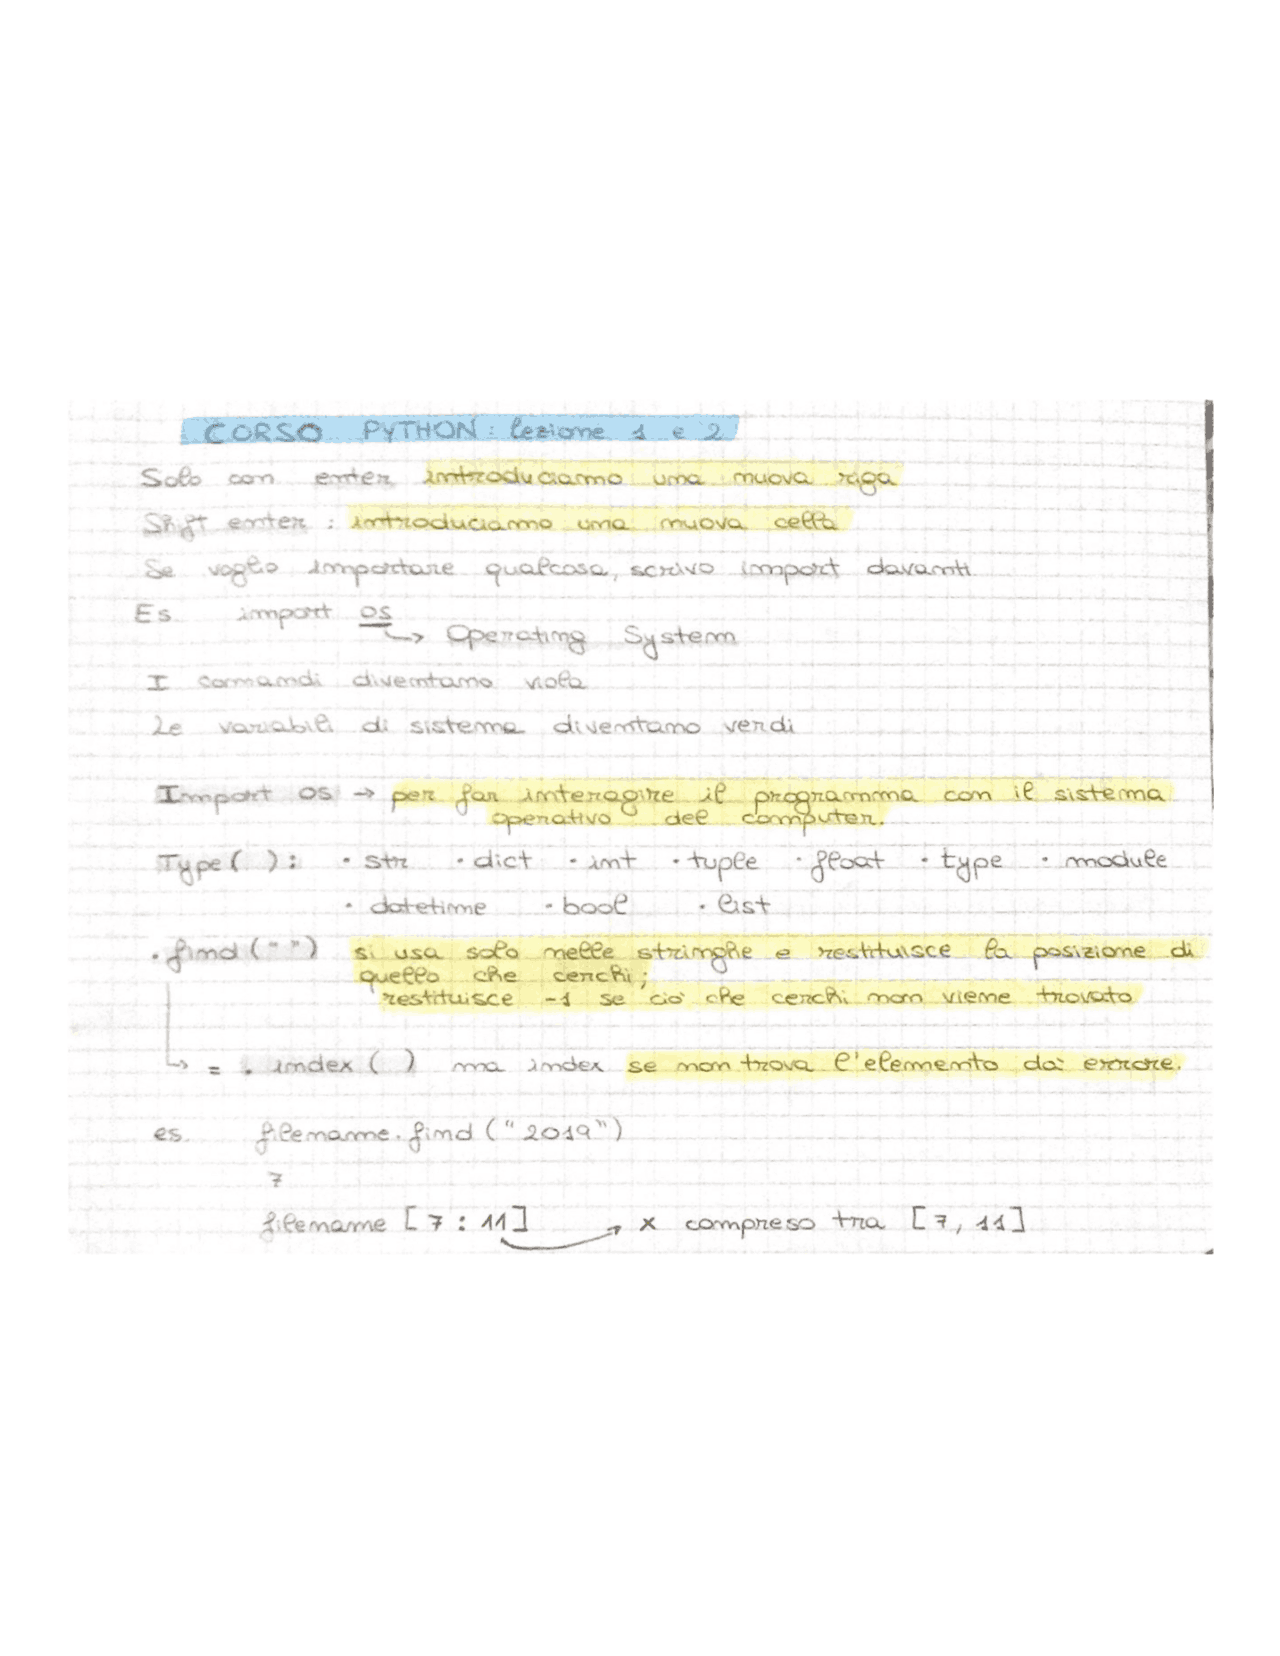 CORSO PYTHON: lezione 1 e 2
Solo con enter introduciamo una nuova riga
Shift enter : introduciamo una nuova cella
Se voglio importare qualcosa, scrivo import davanti
Es import os
↳ Operating System
I comandi diventano viola
Le variabili di sistema diventano verdi
Import os → per far interagire il programma con il sistema
operativo del computer.
Type ( ) : • str • dict • int • tuple • float • type • module
• datetime • bool • list
• find (" ") si usa solo nelle stringhe e restituisce la posizione di
quello che cerchi;
restituisce -1 se ciò che cerchi non viene trovato
↳ = . index ( ) ma index se non trova l'elemento dà errore.
es. filename.find ("2019")
7
filename [7 : 11] → x compreso tra [7, 11]